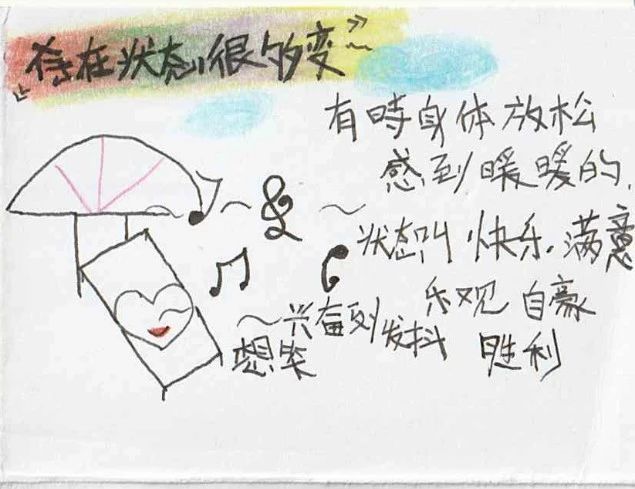 《存在状态很多变》
有時身体放松
感到暖暖的.
状态叫快乐.满意
乐观 自豪
胜利
~兴奋到发抖
想笑